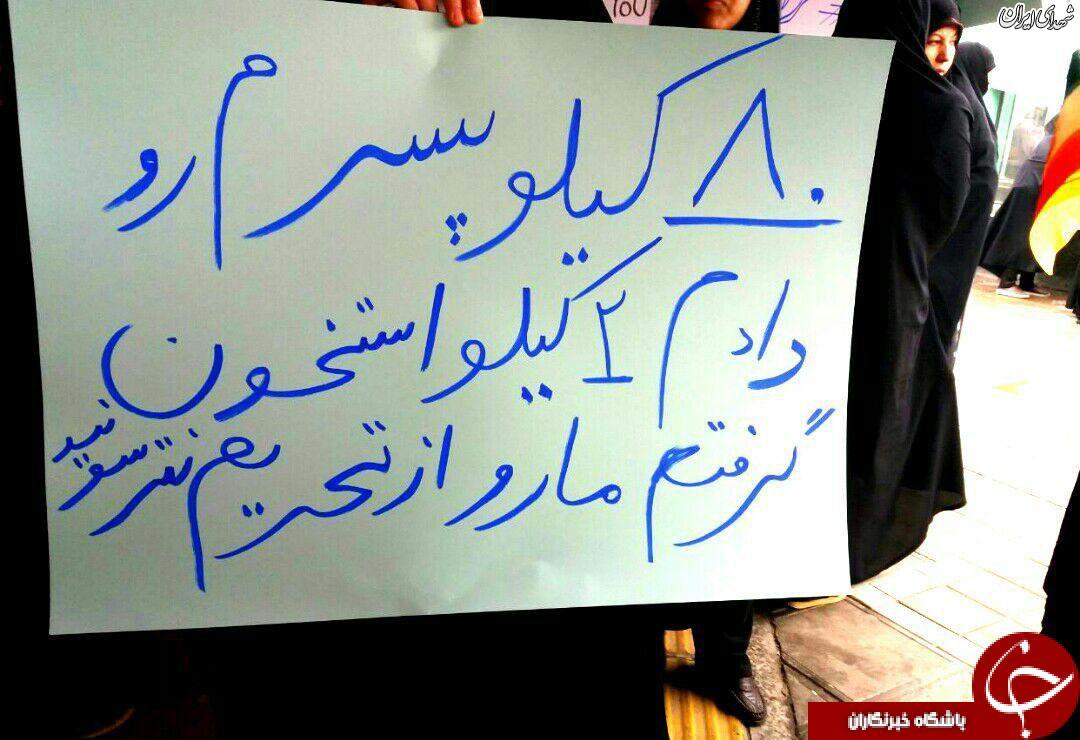 you
شهدای ایران
۸۰ کیلو پسرم رو
دادم ۲ کیلو استخون
گرفتم مارو از تحریم نترسونید
باشگاه خبرنگاران